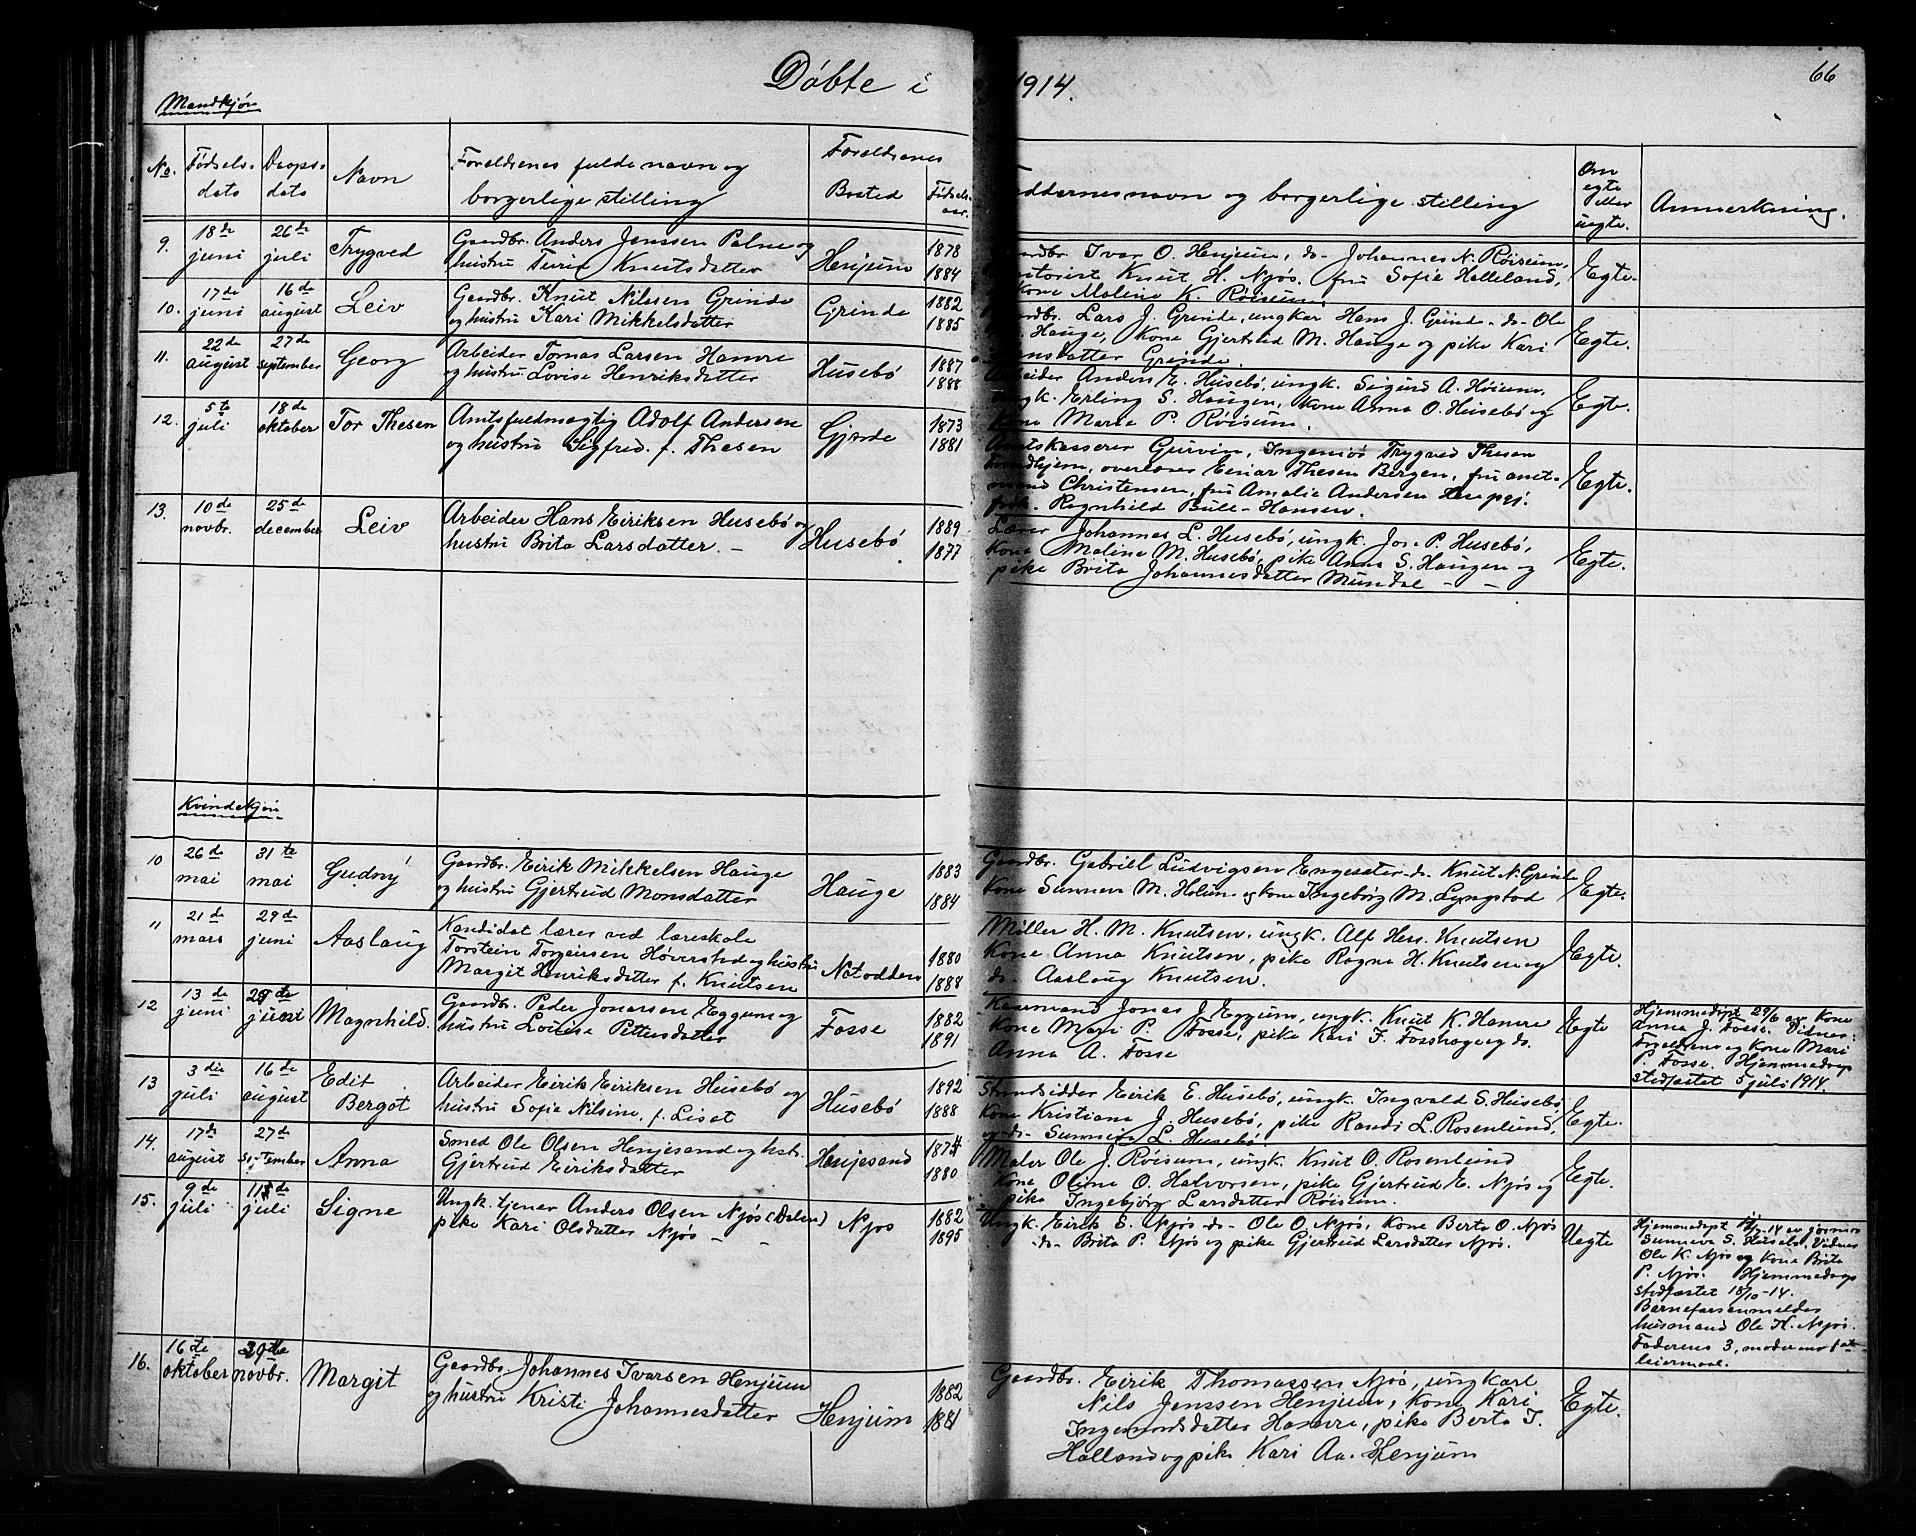 Döbte i 1914.
66
Mandkjön
No. Födselsdato Daapsdato Navn Foreldrenes fulde navn og borgerlige stilling Foreldrenes Bosted Födselsaar. Faddernes navn og borgerlige stilling Om egte eller uegte. Anmerkning.
9. 18de juni 26de juli Trygved
Gaardbr. Anders Jenssen Palne og
hustru Turid Knutsdatter
Henjum 1878 1884
Ivar O. Henjum, do- Johannes N. Röisum,
Knut H. Njös. fru Sofie Halleland,
kone Malene K. Röisum
Egte.
10. 17de juni 16de august Leiv
Gaardbr. Knut Nilssen Grinde
og hustru Kari Mikkelsdatter
Grinde 1882 1885
Lars J. Grinde, ungkar Hans J. Grinde- do- Ole
Hauge, kone Gjertrud M. Hauge og pike Kari
Grinde
Egte.
11. 22de august 27de september Georg
Arbeider Tomas Larsen Hamre
og hustru Lovise Henriksdatter
Husebö 1887 1888
Arbeider Anders E. Husebö, ungk. Sigurd A. Höium,
ungk. Erling S. Haugen, kone Anna O. Husebö og
kone Marie P. Röisum.
Egte.
12. 5te juli 18de oktober Tor Thesen
Amtsfuldmægtig Adolf Andersen
og hustru Sigfred f. Thesen
Gjerde 1873 1881
Amtskasserer Gurvin, Ingeniör Trygved Thesen
Trondhjem, overlærer Einar Thesen Bergen, fru amt-
mand Christensen, fru Amalie Andersen
frk. Ragnhild Bull-Hansen.
Egte.
13. 10de novbr. 25de december Leiv
Arbeider Hans Eiriksen Husebö og
hustru Brita Larsdatter. -
Husebö 1889 1877
Lærer Johannes L. Husebö, ungk. Jon P. Husebö,
kone Malina M. Husebö, pike Anna S. Haugen og
pike Brita Johannesdatter Mundal - -
Egte.
Kvindekjön
10 26de mai 31te mai Gudny
Gaardbr. Eirik Mikkelsen Hauge
og hustru Gjertrud Monsdatter
Hauge 1883 1884
Gaardbr. Gabriel Ludvigsen Engesæter- do- Knut N. Grinde
kone Sunneva M. Holum og kone Ingeborg M. Lyngstad
Egte.
11 21de mars 29de juni Aaslaug
Kandidat lærer ved læreskole
Torstein Torgeirsen Höverstad og hustru
Margit Henriksdatter f. Knutsen
Notodden 1880 1888
Möller H. M. Knutsen, ungk. Alf Hen. Knutsen
kone Anna Knutsen, pike Ragna H. Knutsen og
do- Aaslaug Knutsen.
Egte.
12 13de juni juni Magnhild.
Gaardbr. Peder Jonassen Eggum og
hustru Lovise Pettersdatter
Fosse 1882 1891
Kaarmand Jonas J. Eggum, ungk. Knut K. Hamre
kone Mari P. Fosse, pike Kari J. Fosshage og do.
Anna A. Fosse
Egte
Hjemmedöpt 29/6 av kone
Anna J. Fosse. Vidner:
Foreldrene og kone Mari
P. Fosse. Hjemmedaap
stadfæstet 5 juli 1914.
13 3die juli 16de august Edit Bergot
Arbeider Eirik Eiriksen Husebö og
hustru Sofie Nilsine, f. Liset
Husebö 1892 1888
Strandsidder Eirik E. Husebö, ungk. Ingvald S. Husebö,
kone Kristiane J. Husebö, pike Randi L. Rosenlund,
og do- Sunniva L. Husebö.
Egte.
14. 17de august 27de september Anna
Smed Ole Olsen Henjesand og hstr.
Gjertrud Eiriksdatter
Henjesand 1874 1880
Maler Ole J. Röisum, ungk. Knut O. Rosenlund
kone Oline O. Halvorsen, pike Gjertrud E. Njös og
pike Ingebjörg Larsdatter Röisum.
Egte.
15. 9de juli juli Signe
Ungk. tjener Anders Olsen Njös (Dalen)
pike Kari Olsdatter Njös - -
Njös 1882 1895
Ungk. Eirik E. Njös- do- Ole O. Njös, kone Berta O. Njös
-do- Brita P. Njös og pike Gjertrud Larsdatter Njös.
Uegte
Hjemmedöpt -14 av gjormor
Sunneva S. Vidner
Ole K. Njös og kone Brita
P. Njös. Hjemmedaap
stadfæstet 18/10-14.
Barnefar anmeldes
husmand Ole H. Njös.
Faderens 3, moderens 1ste
leiermaal.
16. 16de oktober 29de novbr. Margit
Gaardbr. Johannes Ivarsen Henjum
og hustru Kristi Johannesdatter
Henjum 1882 1881
Gaardbr. Eirik Thomassen Njös, ungkarl
Nils Jenssen Henjum, kone Kari
Ingemundsdatter Hamre, pike Berta J.
Halland og pike Kari Aa. Henjum
Egte.